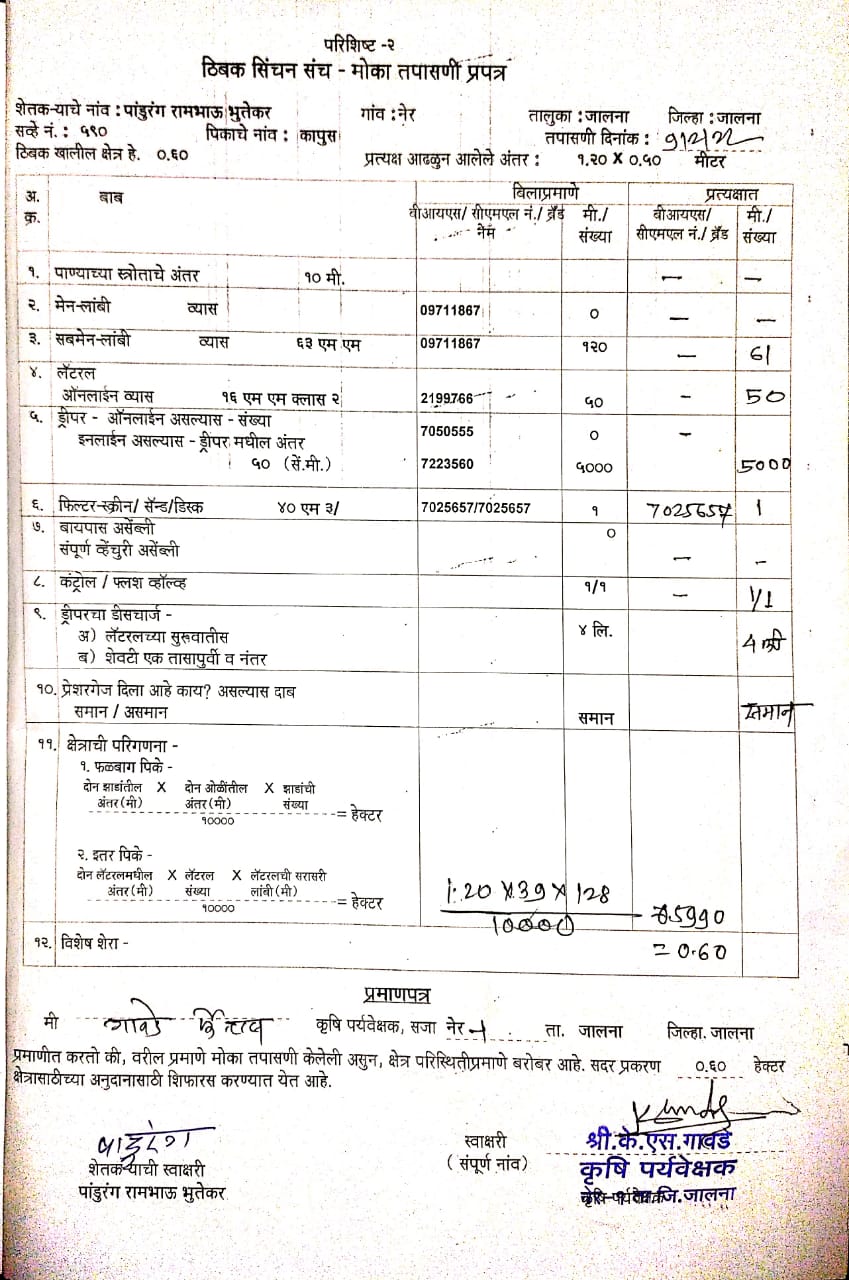 परिशिष्ट -२
ठिबक सिंचन संच - मोका तपासणी प्रपत्र
शेतक-याचे नांव : पांडुरंग रामभाऊ भुतेकर गांव : नेर तालुका : जालना जिल्हा : जालना
सव्हे नं. : ५९० पिकाचे नांव : कापुस तपासणी दिनांक :
ठिबक खालील क्षेत्र हे. ०.६० प्रत्यक्ष आढळुन आलेले अंतर : १.२० X ०.५० मीटर
अ. क्र. बाब बिलाप्रमाणे प्रत्यक्षात
बीआयएस/ सीएमएल नं./ ब्रँड नेम मी./ संख्या बीआयएस/ सीएमएल नं./ ब्रँड मी./ संख्या
१. पाण्याच्या स्त्रोताचे अंतर १० मी. — —
२. मेन-लांबी व्यास 09711867 ० — —
३. सबमेन-लांबी व्यास ६३ एम एम 09711867 १२० — 61
४. लॅटरल
ऑनलाईन व्यास १६ एम एम क्लास २ 2199766 ५० - 50
५. ड्रीपर - ऑनलाईन असल्यास - संख्या 7050555 ० -
इनलाईन असल्यास - ड्रीपर मधील अंतर
५० (सें.मी.) 7223560 ५००० 5000
६. फिल्टर-स्क्रीन/ सॅन्ड/डिस्क ४० एम ३/ 7025657/7025657 १ 7025657 1
७. बायपास असेंब्ली ०
संपूर्ण व्हेंचुरी असेंब्ली — -
८. कंट्रोल / फ्लश व्हॉल्व्ह १/१ — 1/1
९. ड्रीपरचा डीसचार्ज -
अ) लॅटरलच्या सुरूवातीस ४ लि. 4 ली
ब) शेवटी एक तासापुर्वी व नंतर
१०. प्रेशरगेज दिला आहे काय? असल्यास दाब
समान / असमान समान समान
११. क्षेत्राची परिगणना -
१. फळबाग पिके -
दोन झाडांतील X दोन ओळींतील X झाडांची
अंतर(मी) अंतर(मी) संख्या
= हेक्टर
१००००
२. इतर पिके -
दोन लॅटरलमधील X लॅटरल X लॅटरलची सरासरी
अंतर(मी) संख्या लांबी(मी)
= हेक्टर
१००००
1.20 X 39 X 128
10000
0.5990
१२. विशेष शेरा - = 0.60
प्रमाणपत्र
मी कृषि पर्यवेक्षक, सजा नेर-१ ता. जालना जिल्हा. जालना
प्रमाणीत करतो की, वरील प्रमाणे मोका तपासणी केलेली असुन, क्षेत्र परिस्थितीप्रमाणे बरोबर आहे. सदर प्रकरण ०.६० हेक्टर
क्षेत्रासाठीच्या अनुदानासाठी शिफारस करण्यात येत आहे.
पांडुरंग
शेतक-याची स्वाक्षरी
पांडुरंग रामभाऊ भुतेकर
स्वाक्षरी
( संपूर्ण नांव)
श्री.के.एस.गावडे
कृषि पर्यवेक्षक
जि.जालना